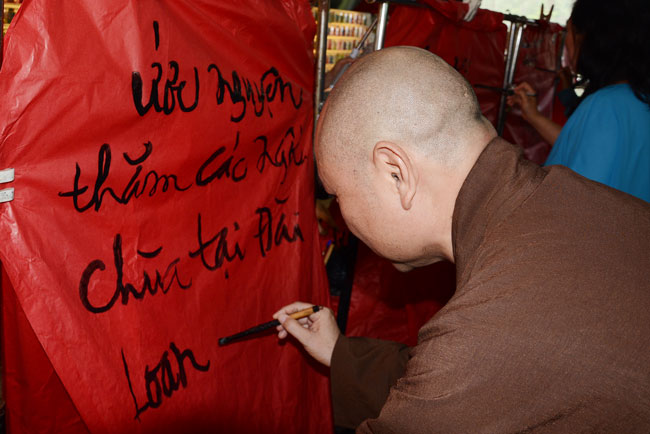 Ước nguyện
thăm các ngôi
chùa tại Đài
Loan